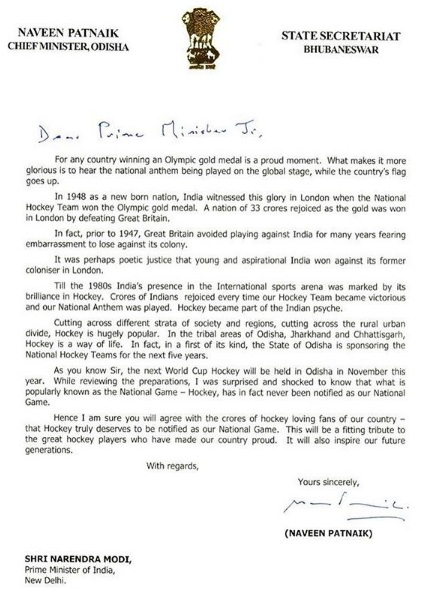 NAVEEN PATNAIK
CHIEF MINISTER, ODISHA
STATE SECRETARIAT
BHUBANESWAR
Dear Prime Minister Ji,
For any country winning an Olympic gold medal is a proud moment. What makes it more
glorious is to hear the national anthem being played on the global stage, while the country's flag
goes up.
In 1948 as a new born nation, India witnessed this glory in London when the National
Hockey Team won the Olympic gold medal. A nation of 33 crores rejoiced as the gold was won
in London by defeating Great Britain.
In fact, prior to 1947, Great Britain avoided playing against India for many years fearing
embarrassment to lose against its colony.
It was perhaps poetic justice that young and aspirational India won against its former
coloniser in London.
Till the 1980s India's presence in the International sports arena was marked by its
brilliance in Hockey. Crores of Indians rejoiced every time our Hockey Team became victorious
and our National Anthem was played. Hockey became part of the Indian psyche.
Cutting across different strata of society and regions, cutting across the rural urban
divide, Hockey is hugely popular. In the tribal areas of Odisha, Jharkhand and Chhattisgarh,
Hockey is a way of life. In fact, in a first of its kind, the State of Odisha is sponsoring the
National Hockey Teams for the next five years.
As you know Sir, the next World Cup Hockey will be held in Odisha in November this
year. While reviewing the preparations, I was surprised and shocked to know that what is
popularly known as the National Game – Hockey, has in fact never been notified as our National
Game.
Hence I am sure you will agree with the crores of hockey loving fans of our country –
that Hockey truly deserves to be notified as our National Game. This will be a fitting tribute to
the great hockey players who have made our country proud. It will also inspire our future
generations.
With regards,
Yours sincerely,
(NAVEEN PATNAIK)
SHRI NARENDRA MODI,
Prime Minister of India,
New Delhi.